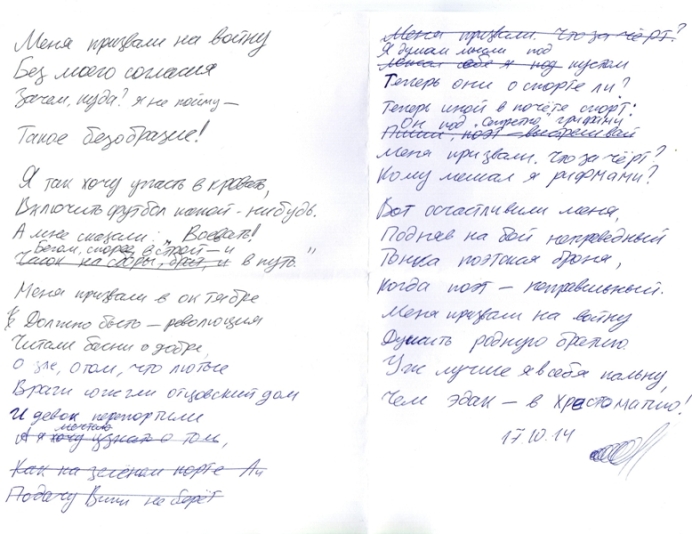 Меня призвали на войну
Без моего согласия
Зачем, куда? я не пойму –
Такое безобразие!
Я так хочу упасть в кровать,
Включить футбол какой-нибудь.
А мне сказали: "Воевать!
Бегом, скорее, в строй – и
Часок на сборы, брат, и в путь"
Меня призвали в октябре
Должно быть – революция
Читали басни о добре,
О зле, о том, что лютые
Враги сожгли отцовский дом
И девок перепортили
мечтаю
А я хочу узнать о том,
Как на зелёном корте Ан
Подачу Винчи не берёт
Меня призвали. Что за чёрт?
Я думал под
я под пустом
Теперь они о спорте ли?
Теперь иной в почёте спорт:
Он под "секретно" грифами
поэт – выстреливай
Меня призвали. Что за чёрт?
Кому мешал я рифмами?
Вот осчастливили меня,
Подняв на бой неправедный
Тонка поэтская броня,
Когда поэт – неправильный.
Меня призвали на войну
Душить родную братию.
Уж лучше я в себя пальну,
Чем эдак – в Хрестоматию!
17.10.14